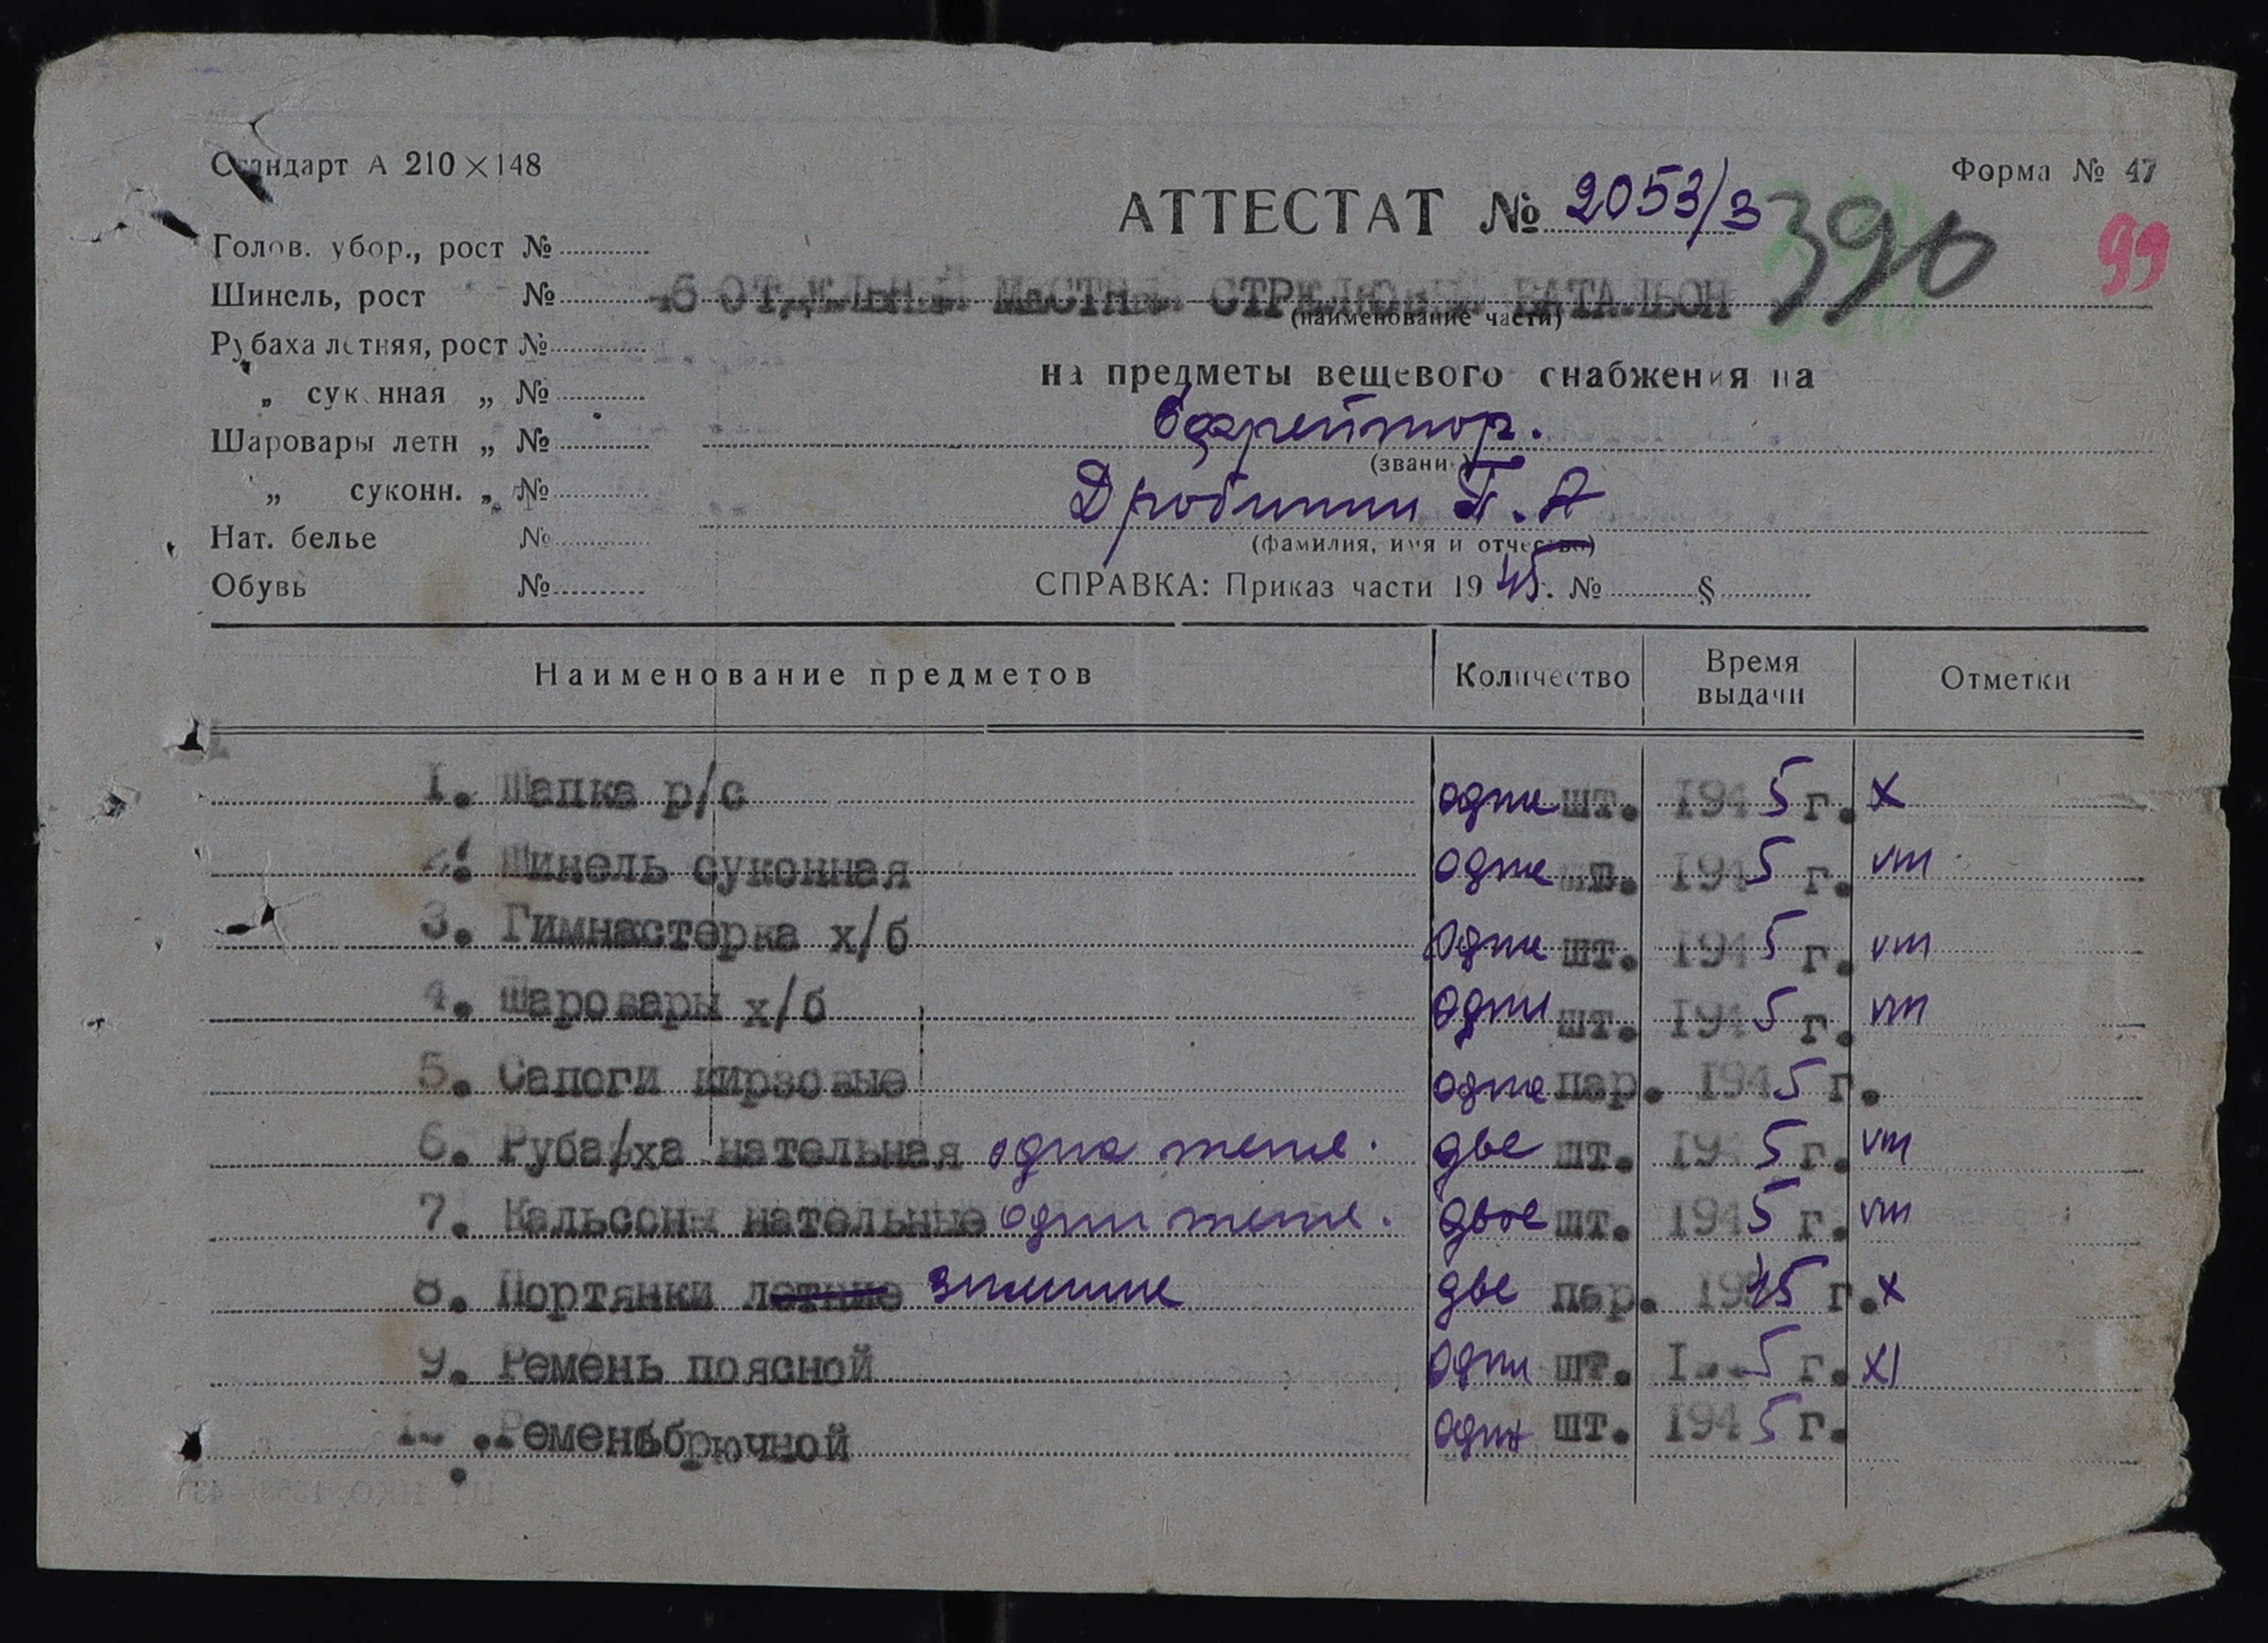 Стандарт А 210×148
Форма № 47
АТТЕСТАТ № 2053/3
390
99
Голов. убор., рост №
Шинель, рост №
46 ОТДЕЛЬН. МЕСТН. СТРЕЛКОВЫЙ БАТАЛЬОН
(наименование части)
Рубаха летняя, рост №
„ суконная „ №
на предметы вещевого снабжения на
Шаровары летн „ №
Ефрейтор.
(звание)
„ суконн. „ №
Дробинин П. А
Нат. белье №
(фамилия, имя и отчество)
Обувь №
СПРАВКА: Приказ части 1945г. № §
Наименование предметов Количество Время выдачи Отметки
1. Шапка р/с одна шт. 1945 г. х
2. Шинель суконная одна шт. 1945 г. vm
3. Гимнастерка х/б одна шт. 1945 г. vm
4. Шаровары х/б одни шт. 1945 г. vm
5. Сапоги кирзовые одна пар. 1945 г.
6. Руба/ха нательная одна тепл. две шт. 1945 г. vm
7. Кальсоны нательные одни тепл. двое шт. 1945 г. vm
8. Портянки летние зимние две пар. 1945 г. х
9. Ремень поясной один шт. 1945 г. XI
10. Ремень брючной один шт. 1945 г.